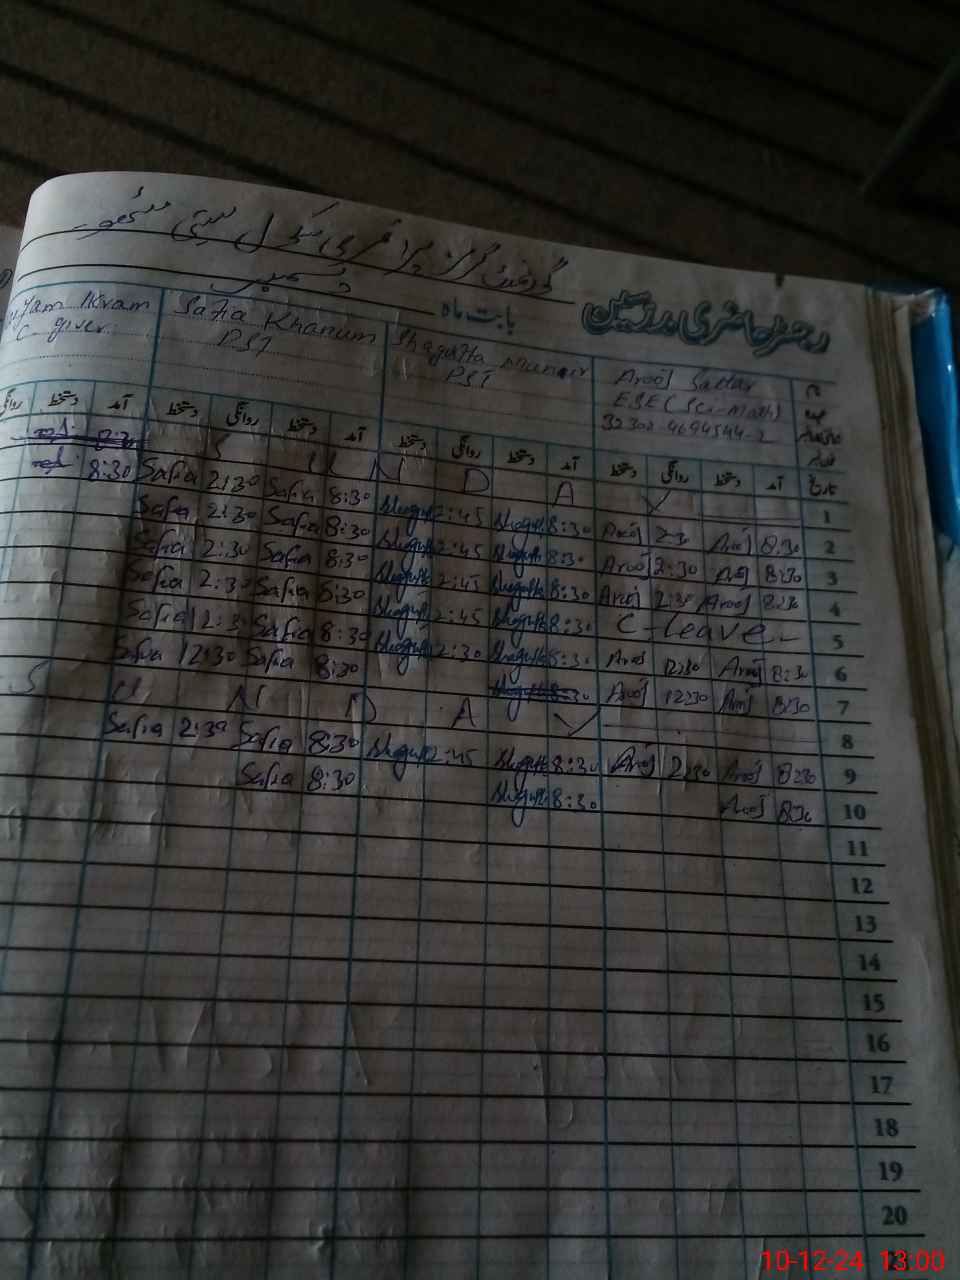 گورنمنٹ گرلز پرائمری سکول
رجسٹر حاضری مدرسین بابت ماہ دسمبر
Ikram Safia Khanum Shagufta Munir Arooj Sattar نام
C giver PST PST ESE (Sci-Math) عہدہ
32302-4694544-2
آمد دستخط روانگی دستخط آمد دستخط روانگی دستخط آمد دستخط روانگی دستخط آمد تاریخ
S U N D A Y 1
8:30 Safia 2:30 Safia 8:30 Shagufta 2:45 Shagufta 8:30 Arooj 2:30 Arooj 8:30 2
Safia 2:30 Safia 8:30 Shagufta 2:45 Shagufta 8:30 Arooj 2:30 Arooj 8:30 3
Safia 2:30 Safia 8:30 Shagufta 2:45 Shagufta 8:30 Arooj 2:30 Arooj 8:30 4
Safia 2:30 Safia 8:30 Shagufta 2:45 Shagufta 8:30 C-leave 5
Safia 12:30 Safia 8:30 Shagufta 8:30 Arooj 12:30 Arooj 8:30 6
Safia 12:30 Safia 8:30 Arooj 12:30 Arooj 8:30 7
S U N D A Y 8
Safia 2:30 Safia 8:30 Shagufta 2:45 Shagufta 8:30 Arooj 2:30 Arooj 8:30 9
Safia 8:30 Shagufta 8:30 Arooj 8:30 10
11
12
13
14
15
16
17
18
19
20
10-12-24 13:00